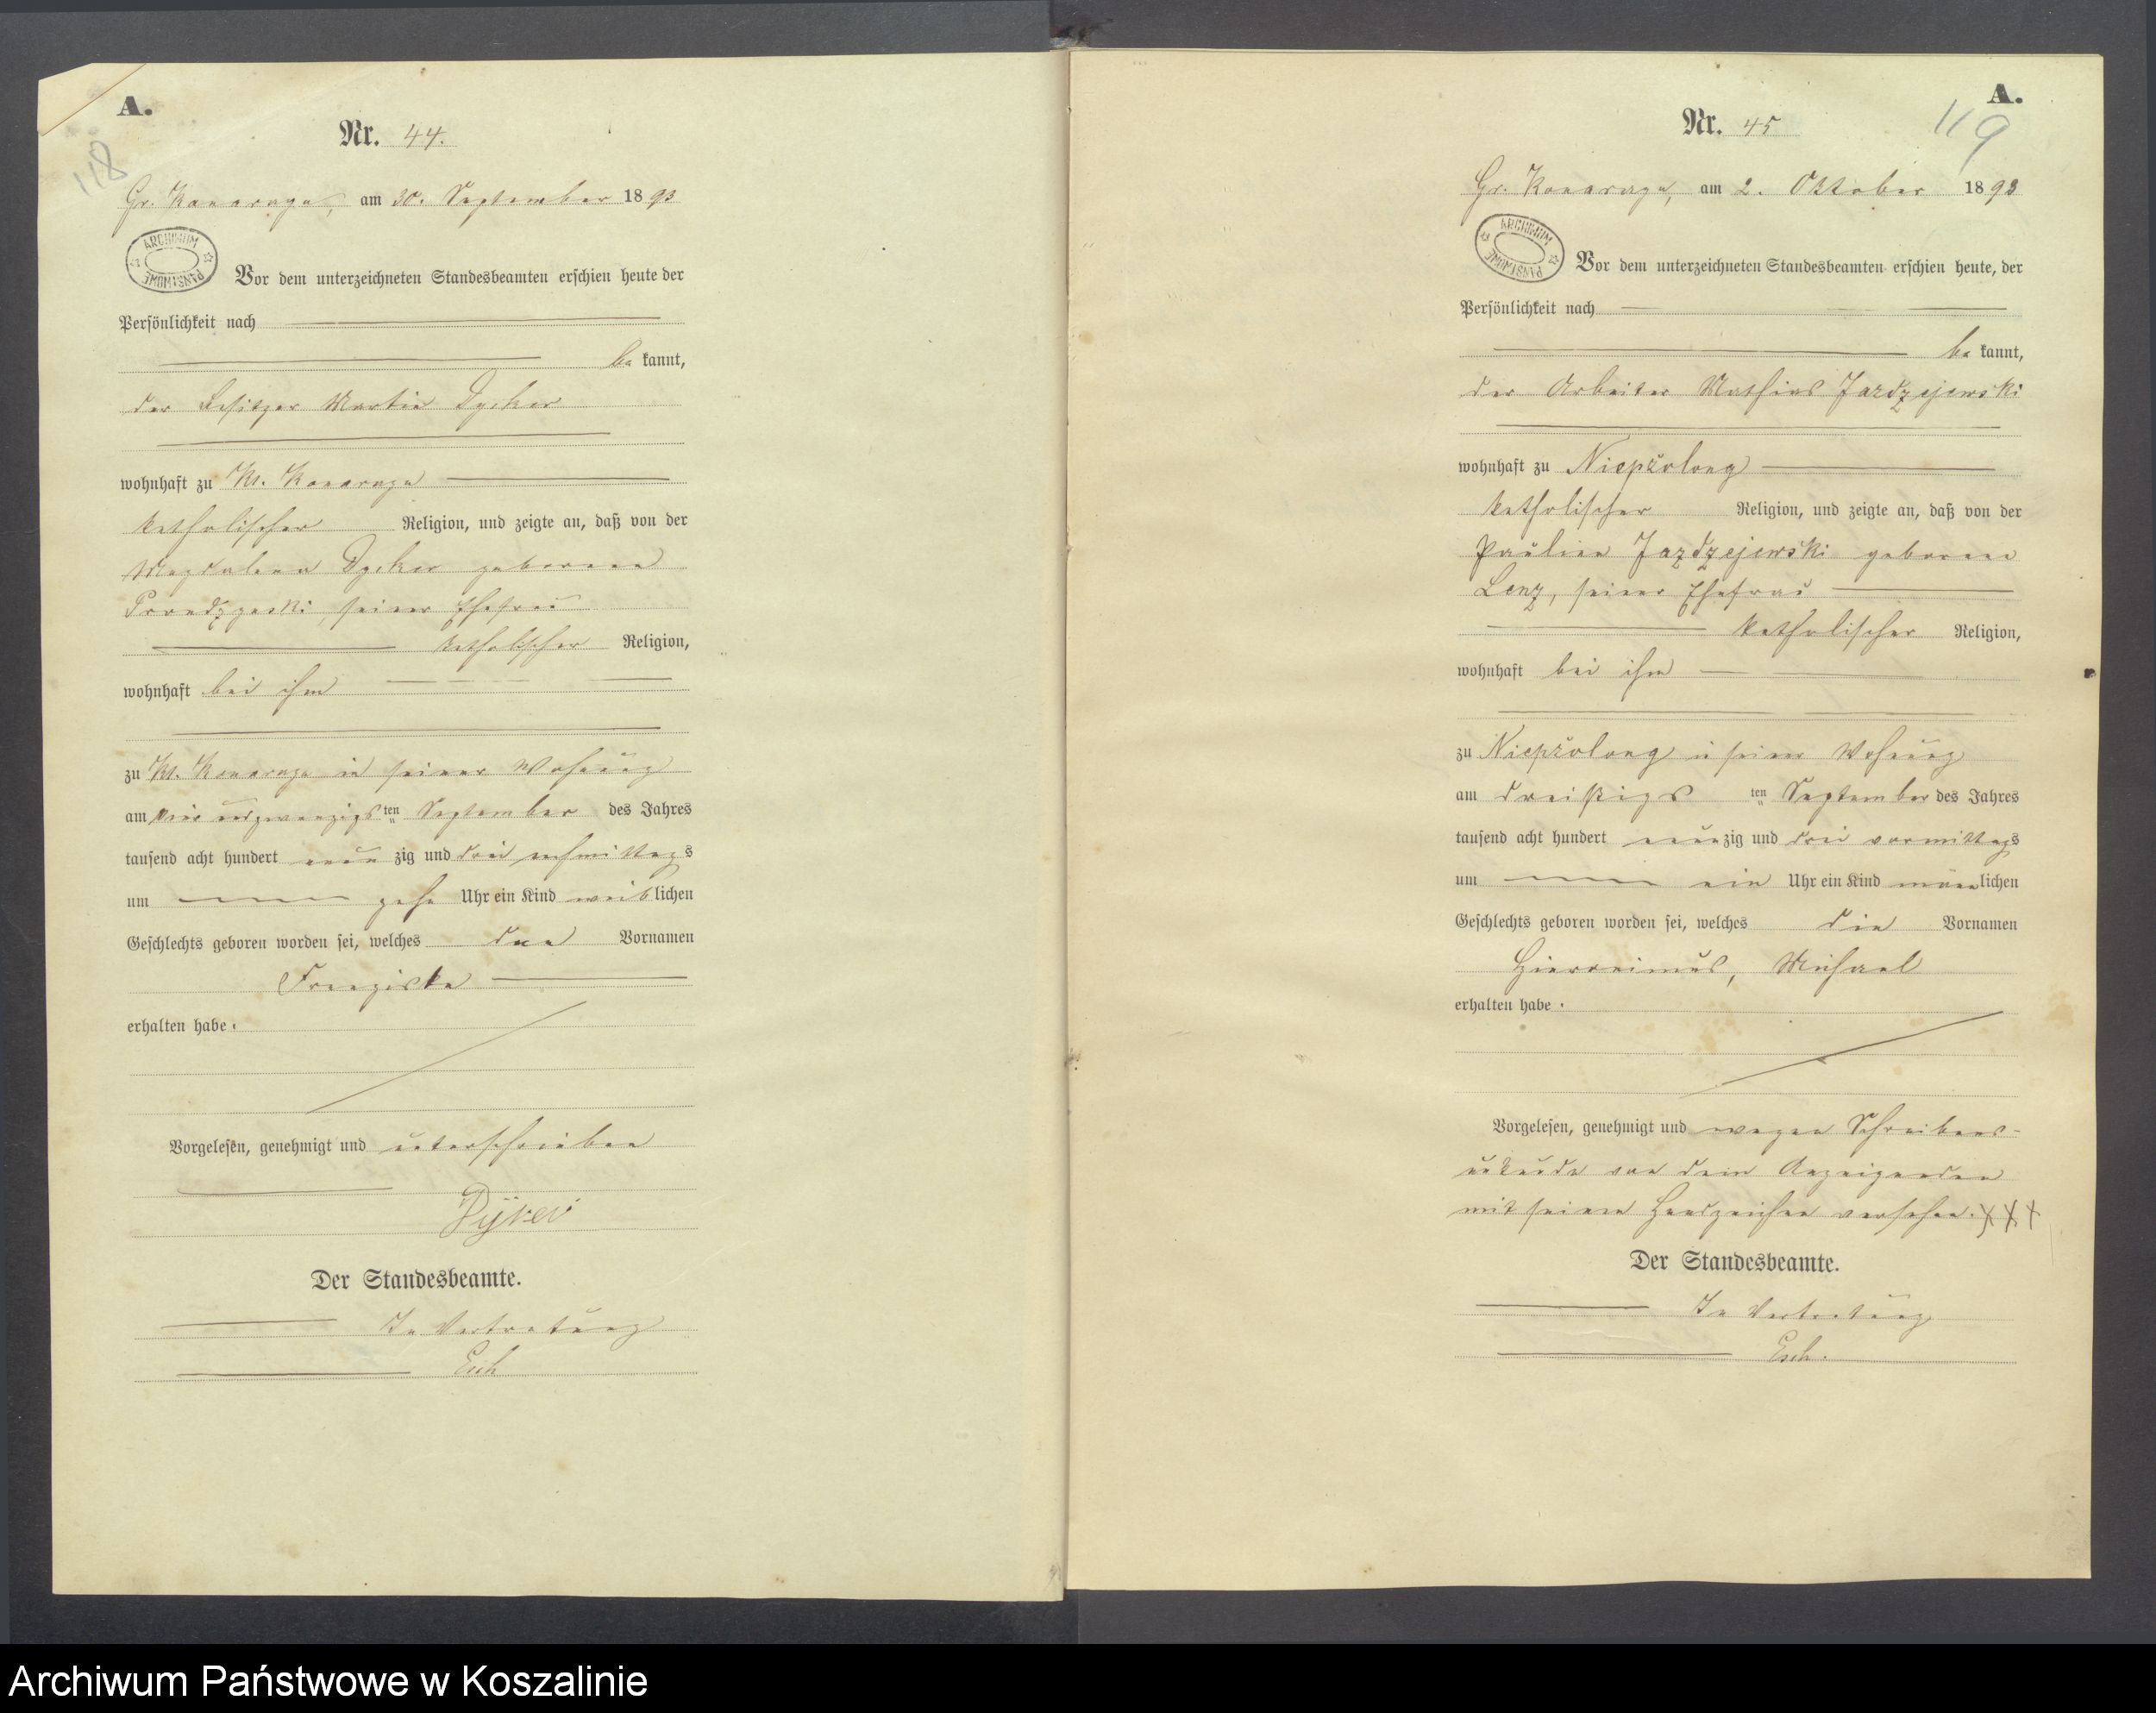 A.
Nr. 44.
118
Gr. Konarczyn, am 30. September 1893
ARCHIWUM PAŃSTWOWE
Vor dem unterzeichneten Standesbeamten erschien heute der
Persönlichkeit nach
be kannt,
der Besitzer Martin
wohnhaft zu Kl. Konarczyn
katholischer Religion, und zeigte an, daß von der
Magdalena geborene
seiner Ehefrau
katholischer Religion,
wohnhaft bei ihm
zu Kl. Konarczyn in seiner Wohnung
am vier und zwanzigs ten September des Jahres
tausend acht hundert neun zig und drei nachmittags
um zehn Uhr ein Kind weiblichen
Geschlechts geboren worden sei, welches den Vornamen
Franziska
erhalten habe.
Vorgelesen, genehmigt und unterschrieben
Der Standesbeamte.
In Vertretung
Esch
A.
Nr. 45
119
Gr. Konarczyn, am 2. Oktober 1893
ARCHIWUM PAŃSTWOWE
Vor dem unterzeichneten Standesbeamten erschien heute, der
Persönlichkeit nach
be kannt,
der Arbeiter Mathias Jazdzejewski
wohnhaft zu
katholischer Religion, und zeigte an, daß von der
Paulina Jazdzejewski geborene
Lenz, seiner Ehefrau
katholischer Religion,
wohnhaft bei ihm
zu in seiner Wohnung
am dreißigs ten September des Jahres
tausend acht hundert neunzig und drei vormittags
um ein Uhr ein Kind männlichen
Geschlechts geboren worden sei, welches die Vornamen
Hieronimus, Michael
erhalten habe.
Vorgelesen, genehmigt und wegen Schreibens-
unkunde von dem Anzeigenden
mit seinem Handzeichen versehen. XXX
Der Standesbeamte.
In Vertretung
Esch.
Archiwum Państwowe w Koszalinie